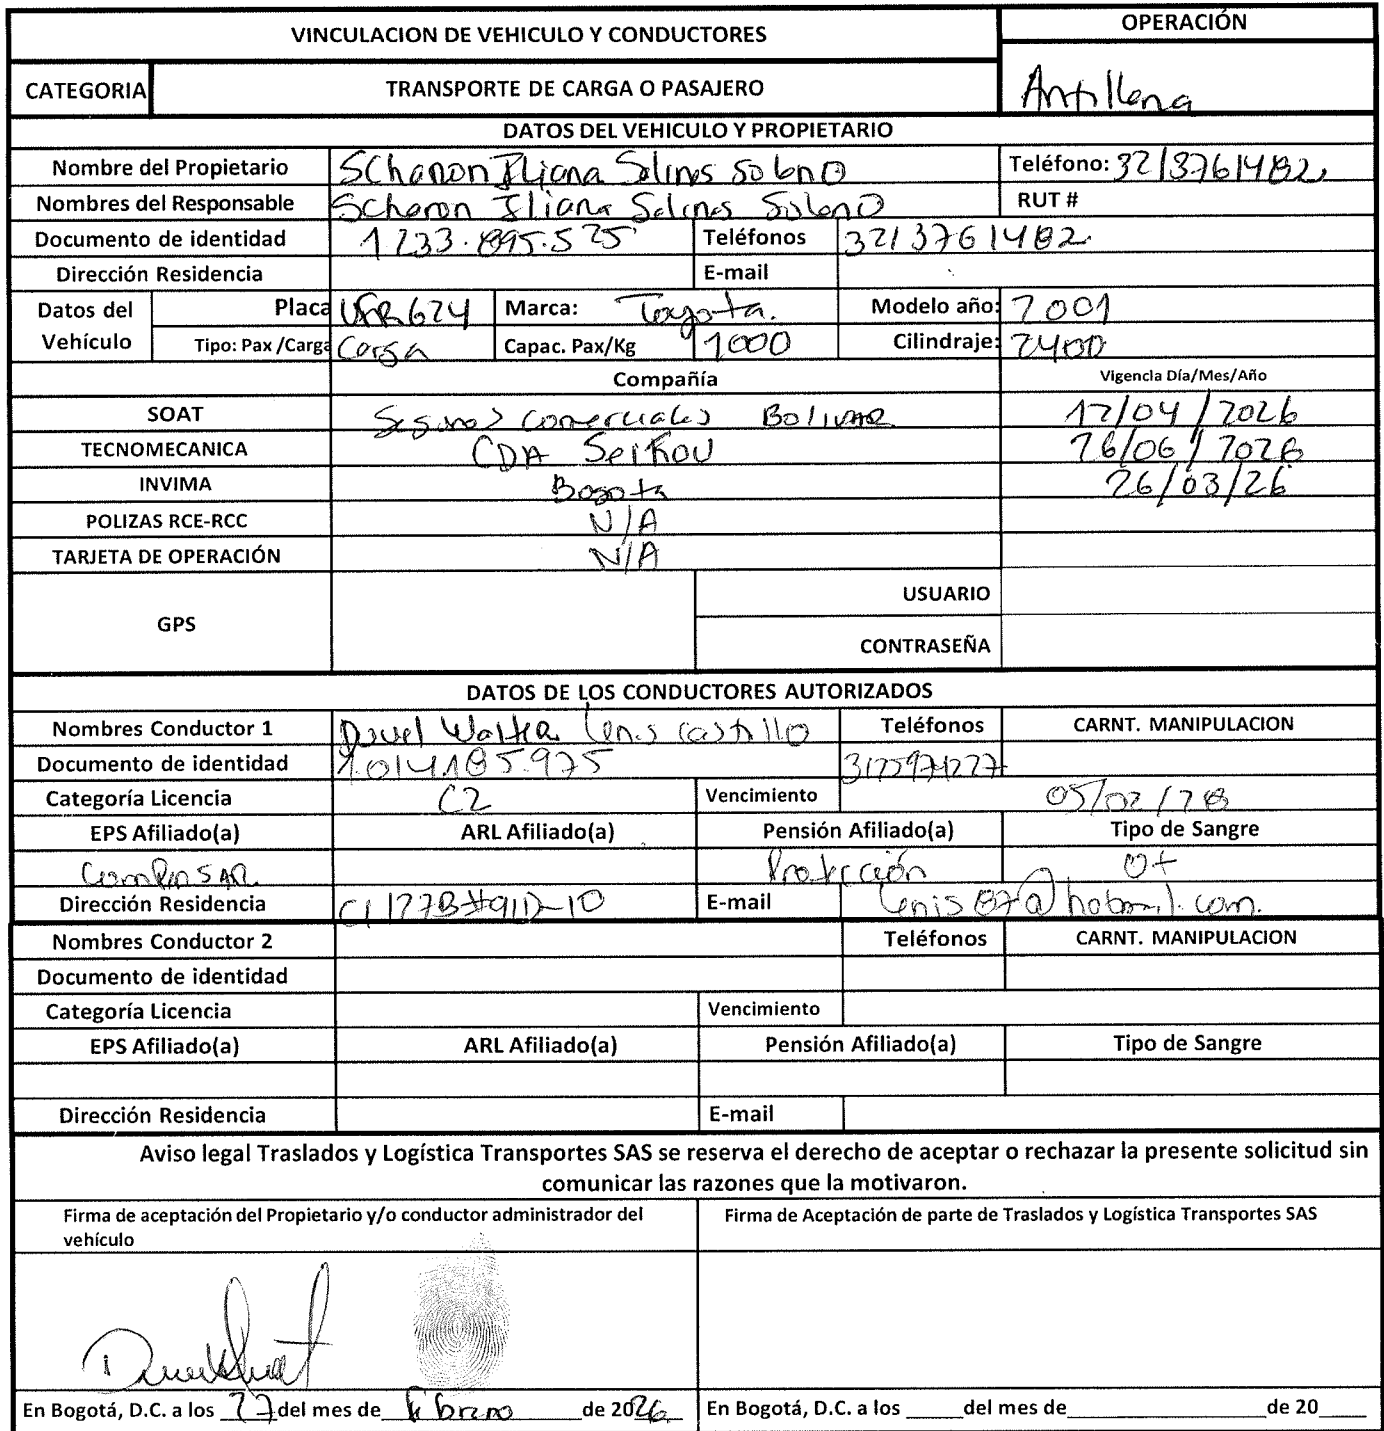 VINCULACION DE VEHICULO Y CONDUCTORES
OPERACIÓN
CATEGORIA TRANSPORTE DE CARGA O PASAJERO Antillana
DATOS DEL VEHICULO Y PROPIETARIO
Nombre del Propietario Scharon Iliana Salinas Soleno Teléfono: 3213761482
Nombres del Responsable Scharon Iliana Salinas Soleno RUT #
Documento de identidad 1233.895.525 Teléfonos 3213761482
Dirección Residencia E-mail
Datos del Vehículo Placa UFR624 Marca: Toyota. Modelo año: 2001
Tipo: Pax /Carga Carga Capac. Pax/Kg 1000 Cilindraje: 2400
Compañía Vigencia Día/Mes/Año
SOAT Seguros comerciales BOLIVAR 12/04/2026
TECNOMECANICA CDA Seikou 26/06/2026
INVIMA Bogota 26/03/26
POLIZAS RCE-RCC N/A
TARJETA DE OPERACIÓN N/A
GPS USUARIO
CONTRASEÑA
DATOS DE LOS CONDUCTORES AUTORIZADOS
Nombres Conductor 1 Walter Lenis Castillo Teléfonos CARNT. MANIPULACION
Documento de identidad 1.014.185.975
Categoría Licencia C2 Vencimiento 05/02/28
EPS Afiliado(a) ARL Afiliado(a) Pensión Afiliado(a) Tipo de Sangre
Compensar Protección O+
Dirección Residencia Cl 127B#91D-10 E-mail lenis87@hotmail.com.
Nombres Conductor 2 Teléfonos CARNT. MANIPULACION
Documento de identidad
Categoría Licencia Vencimiento
EPS Afiliado(a) ARL Afiliado(a) Pensión Afiliado(a) Tipo de Sangre
Dirección Residencia E-mail
Aviso legal Traslados y Logística Transportes SAS se reserva el derecho de aceptar o rechazar la presente solicitud sin
comunicar las razones que la motivaron.
Firma de aceptación del Propietario y/o conductor administrador del
vehículo
Firma de Aceptación de parte de Traslados y Logística Transportes SAS
En Bogotá, D.C. a los 27 del mes de Febrero de 2026
En Bogotá, D.C. a los _____ del mes de____________________ de 20____